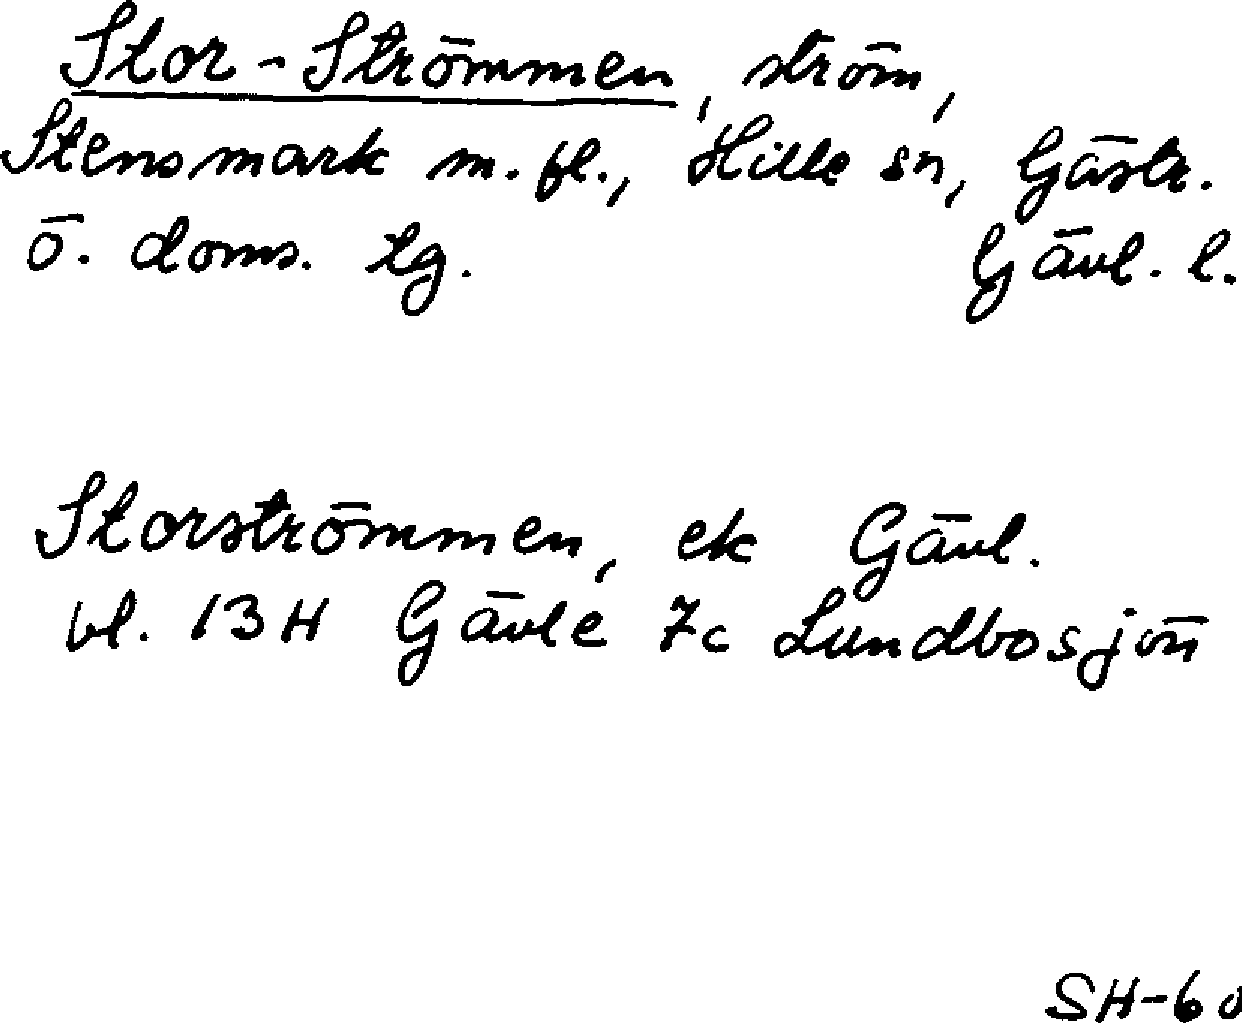 Stor-Strömmen, ström,
Stensmark m.fl., Hille sn, Gästr.
ö. doms. tg. Gävl. l.
Storströmmen, ek Gävl.
bl. 13H Gävle 7c Lundbosjön
SH-60